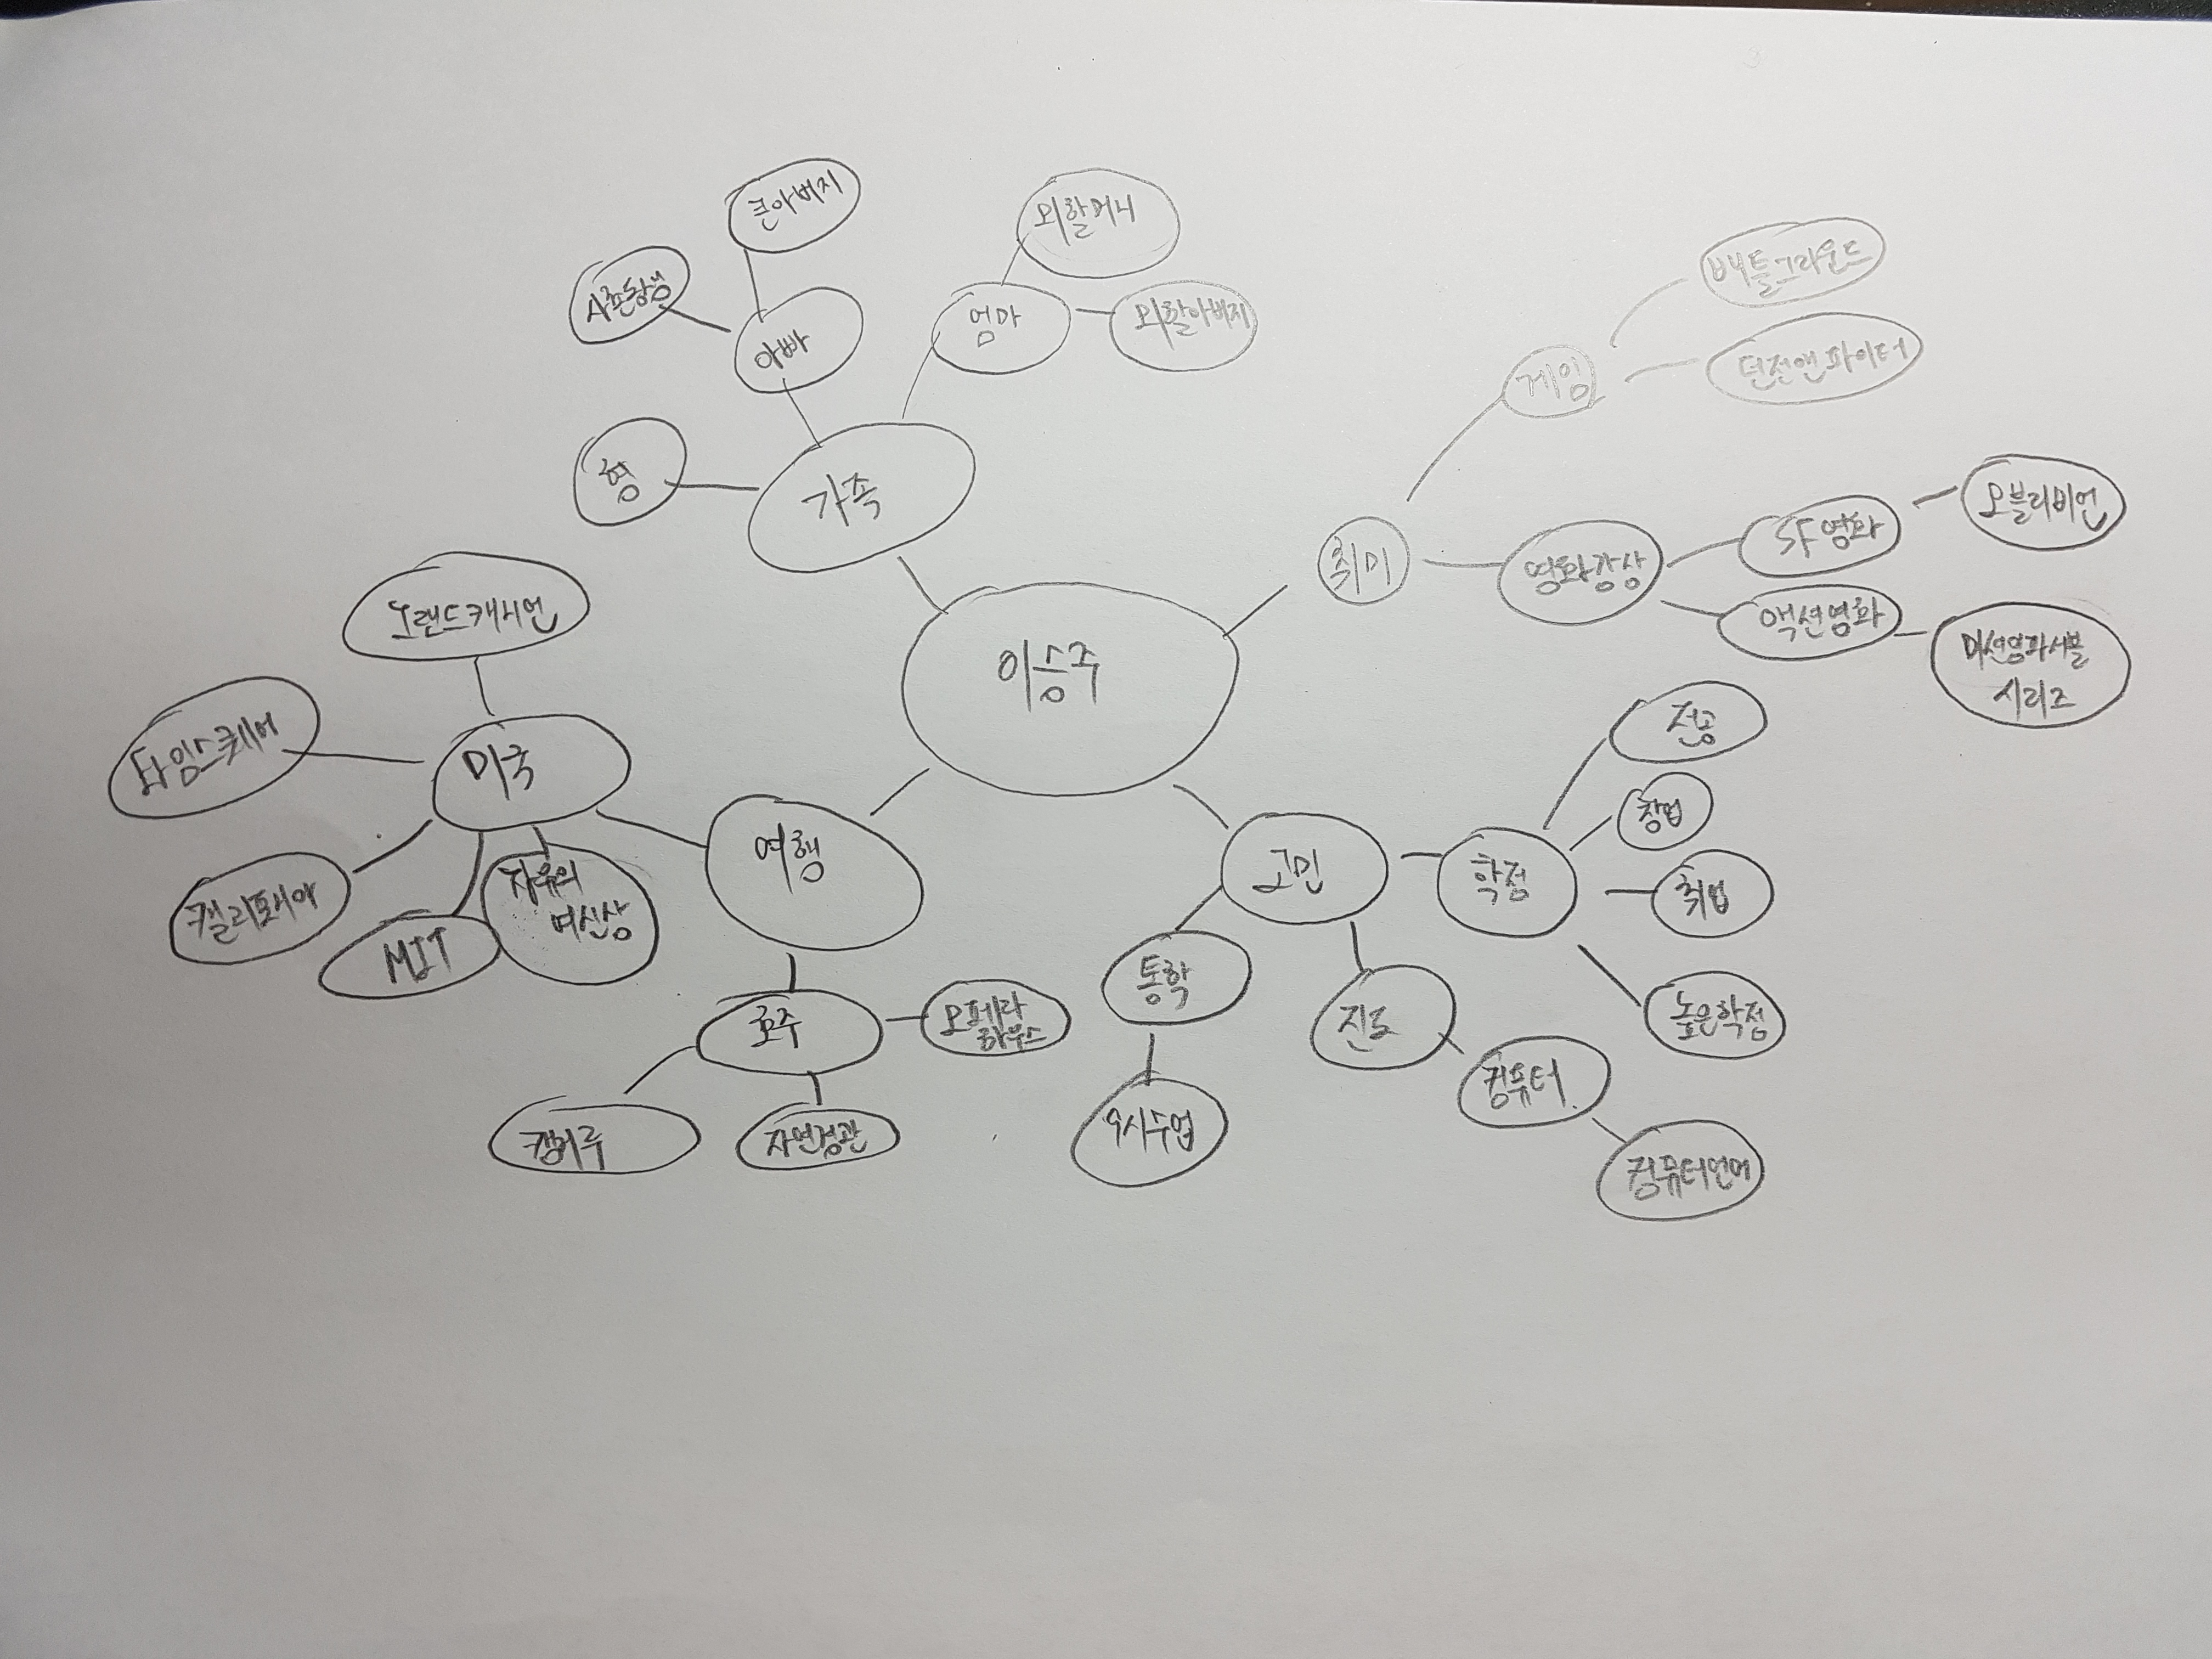 이승주
가족
형
아빠
사촌동생
큰아버지
엄마
외할머니
외할아버지
취미
게임
배틀그라운드
던전앤파이터
영화감상
SF영화
오블리비언
액션영화
미션임파서블
시리즈
고민
학점
전공
창업
취업
높은학점
진로
컴퓨터
컴퓨터언어
통학
9시수업
여행
미국
그랜드캐니언
타임스퀘어
캘리포니아
MIT
자유의
여신상
호주
오페라
하우스
자연경관
캥거루